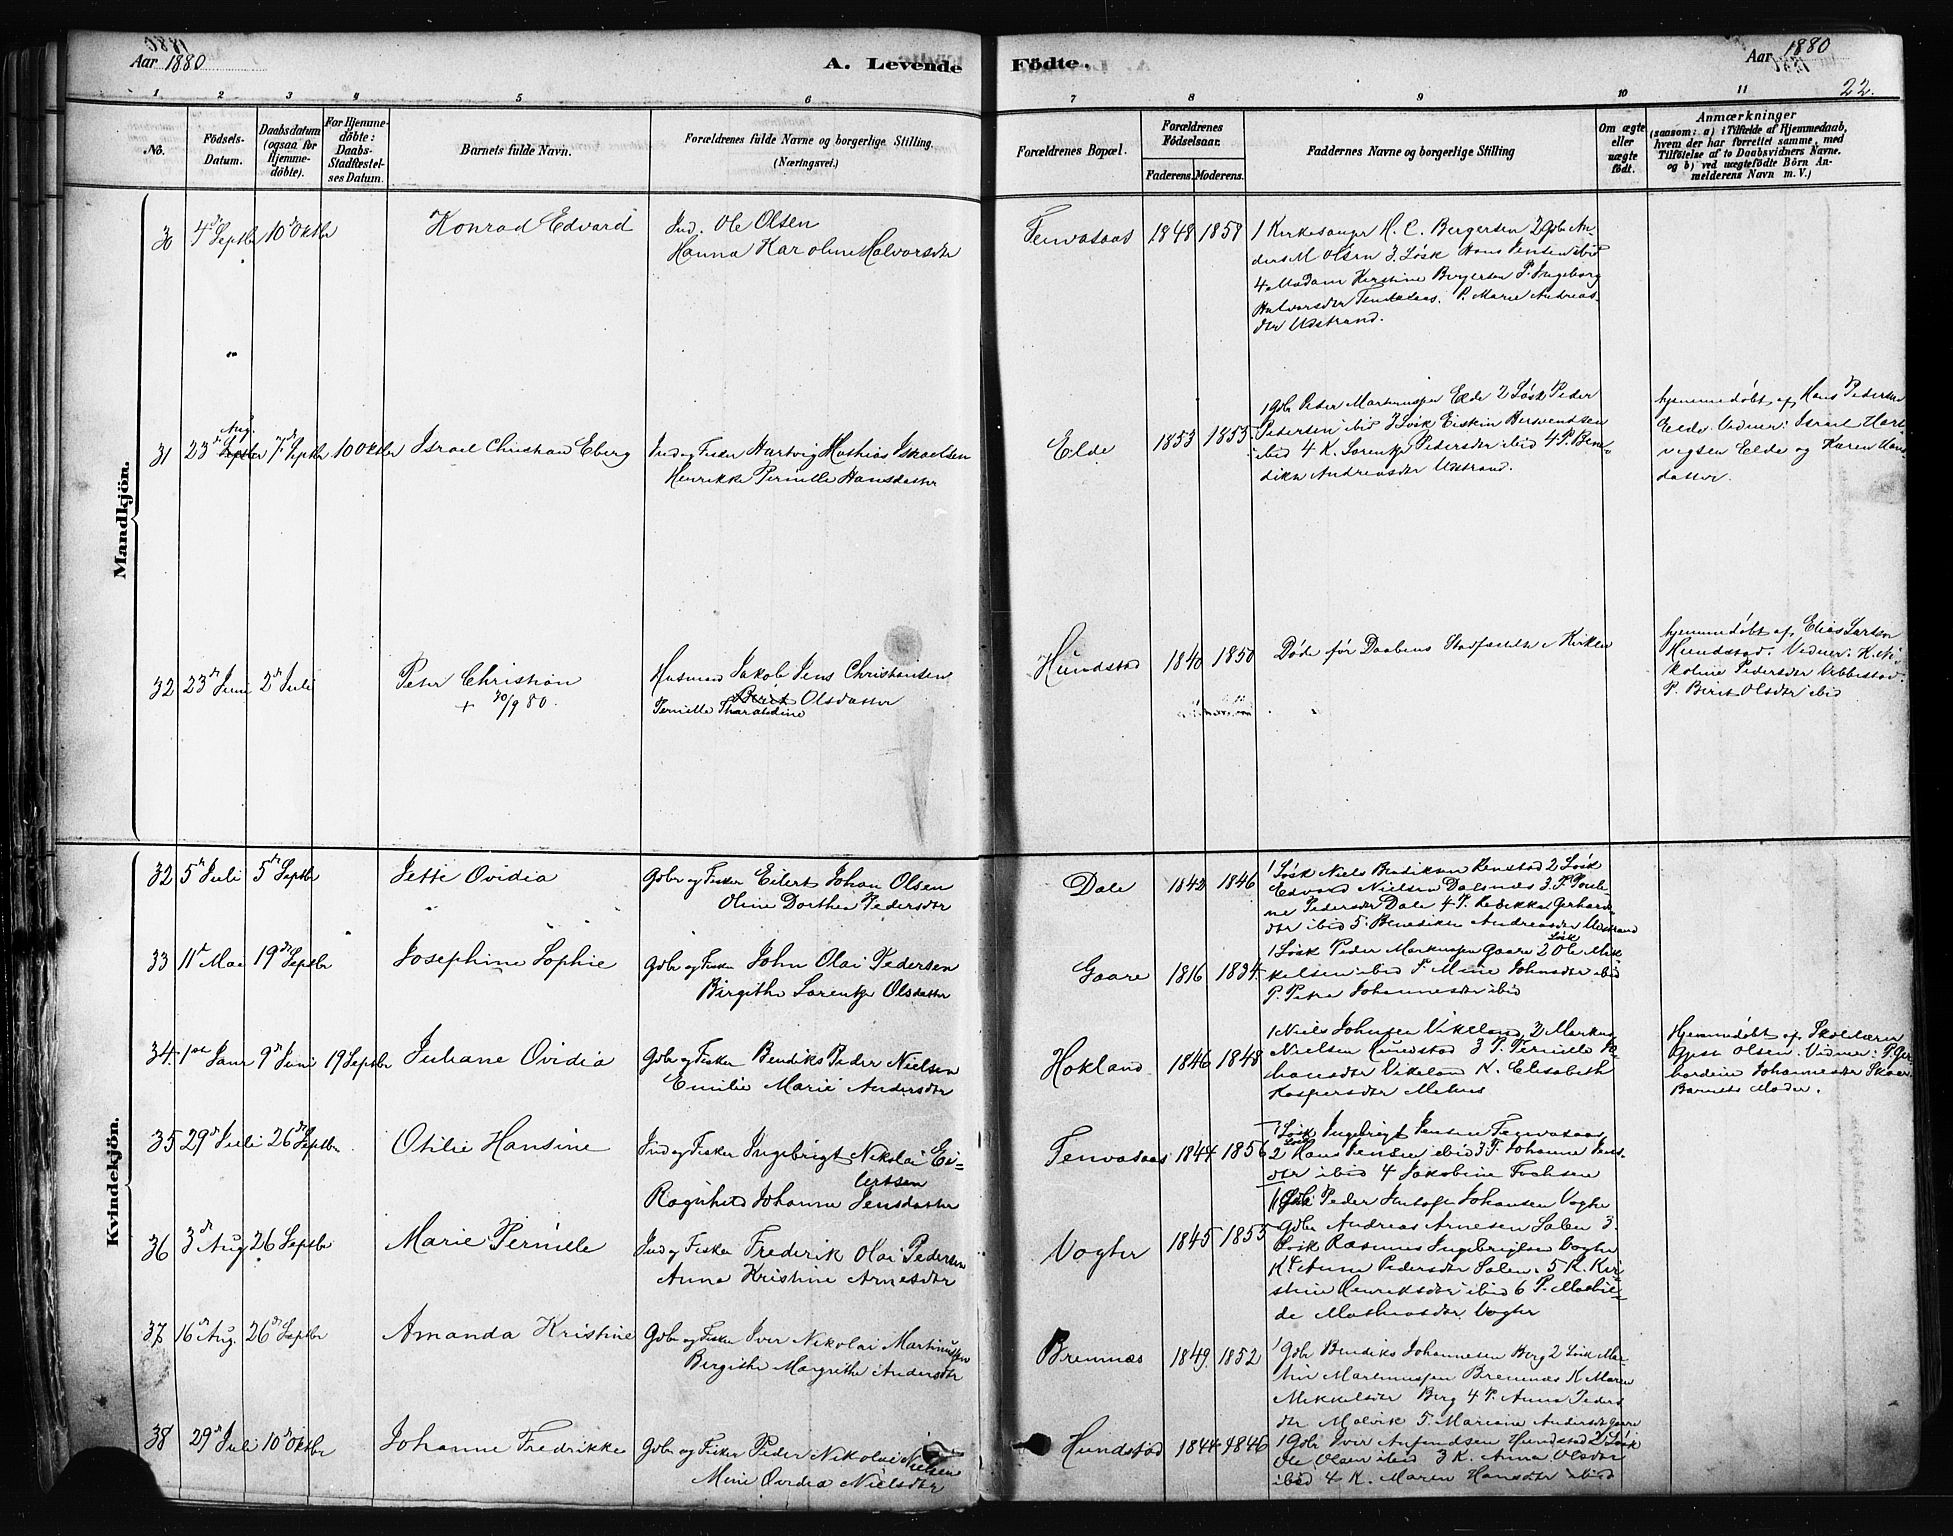 Aar 1880
A. Levende Födte.
Aar 1880
22.
1 2 3 4 5 6 7 8 9 10 11
No.
Födsels-
Datum.
Daabsdatum
(ogsaa for
Hjemme-
döbte).
For Hjemme-
döbte:
Daabs-
Stadfæstel-
ses Datum.
Barnets fulde Navn.
Forældrenes fulde Navne og borgerlige Stilling.
(Næringsvei.)
Forældrenes Bopæl.
Forældrenes
Födselsaar.
Faderens. Moderens.
Faddernes Navne og borgerlige Stilling
Om ægte
eller
uægte
födt.
Anmærkninger
(saasom: a) i Tilfælde af Hjemmedaab,
hvem der har forrettet samme, med
Tilföielse af to Daabsvidners Navne.
og b) ved uægtefödte Börn An-
melderens Navn m. V.)
Mandkjön.
30 4de Septbr 10de Oktbr
Konrad Edvard
Ind. Ole Olsen
Hanna Karoline Halvorsdtr
Tenvasaas 1848 1858
1 Kirkesanger H. C. Bergersen 2 Gbr An-
ders M Olsen 3 Løsk Hans Jensen ibid
4 Madam Kirstine Bergersen P. Ingeborg
Halvorsdtr P. Marie Andreas-
dtr Udstrand.
31 23de Aug. 7de Septbr 10 Oktbr
Israel Christian Eberg
Ind og Fisker Hartvig Mathias Iskaelsen
Henrikke Pernille Hansdatter
Elde 1853 1853
1 Gbr Peter Martinussen Elde 2 Løsk Peder
Pedersen ibid 3 Løsk Eiskin
ibid 4 K. Sørentze Pedersdtr ibid 4 P. Bene-
dikte Andreasdtr Udstrand.
hjemmedøbt af Hans Pedersen
Elde. Vidner: Israel Hart-
vigsen Elde og Karen Hans-
datter.
32 23de Juni 2de Juli
Peter Christian
+ 30/9 80.
Husmand Jakob Jens Christiansen
Berit Olsdatter
Pernille
Hundstad 1840 1850
Døde før Daabens Stadfæstelse i Kirken
hjemmedøbt af Elias Larsen
Hundstad. Vidner: K. Ni-
koline Pedersdtr Vebbestad.
P. Berit Olsdtr ibid
Kvindekjön.
32 5te Juli 5te Septbr
Jette Ovidia
Gbr og Fisker Eilert Johan Olsen
Oline Dorthea Pedersdtr
Dale 1842 1846
1 Løsk Niels Bendiksen Renstad 2 Løsk
Edvard Nielsen Dalsnæs 3 P. Pauli-
ne Pedersdtr Dale 4 P. Rebekka Gerhards-
dtr ibid 5 Benedikte Andreasdtr Udstrand
33 11te Mai 19de Septbr
Josephine Sophie
Gbr og Fisker John Olai Pedersen
Birgithe Sørentze Olsdatter
Gaare 1816 1834
1 Løsk Peder Markussen Gaare 2 Løsk Ole Mik-
kelsen ibid P. Mine Johnsdtr ibid
P. Petra Johannesdtr ibid
34. 1ste Janr 9de Juni 19 Septbr
Juliane Ovidia
Gbr og Fisker Bendiks Peder Nielsen
Emilie Marie Andersdtr
Hokland 1846 1848
1 Niels Johnsen Vikeland 2 Markus
Nielsen Hundstad 3 P. Pernille Jo-
hansdtr Vikeland K. Elisabeth
Kaspersdtr Melnes
Hjemmedøbt af Skolelærer
Olsen. Vidner: P. Ger-
hardine Johannesdtr
Barnets Moder.
35 29de Juli 26de Septbr
Otilie Hansine
Ind og Fisker Ingebrigt Nikolai Ei-
lertsen
Ragnhild Johanna Jensdatter
Tenvasaas 1844 1856
1 Løsk Ingebrigt Jensen Tenvasaas
2 Løsk Hans Jensen ibid 3 P. Johanna Jens-
dtr ibid 4 Jakobine Fochsen
36 3de Aug 26 Septbr
Marie Pernille
Ind og Fisker Frederik Olai Pedersen
Anna Kristine Arnesdtr
Vogter 1845 1855
1 Gbr Peder Johansen Vogter
Gbr Andreas Arnesen Salen 3
Løsk Rasmus Ingebrigtsen Vogter
K. Anne Pedersdtr Salen. 5 K. Kir-
stine Henriksdtr ibid 6 P. Mathil-
de Mathiasdtr Vogter
37. 16de Aug. 26de Septbr
Amanda Kristine
Gbr og Fisker Iver Nikolai Martinussen
Birgithe Margrethe Andersdtr
Bremnæs 1849. 1852
1 Gbr Bendiks Johannesen Berg 2 Løsk Mar-
tin Martinussen Bremnæs K Maren
Mikkelsdtr Berg 4 P. Anna Peders-
dtr Malvik 5 Mariane Andersdtr Gaare
38 29de Juli 10de Oktbr
Johanne Fredrikke
Gbr og Fisker Peder Nikolai Nielsen
Mine Ovidia Nielsdtr
Hundstad 1844 1846
1 Gbr Iver Hundstad 2 Løsk
Ole Olsen ibid 3 K. Anna Olsdtr
ibid 4 K. Maren Hansdtr ibid